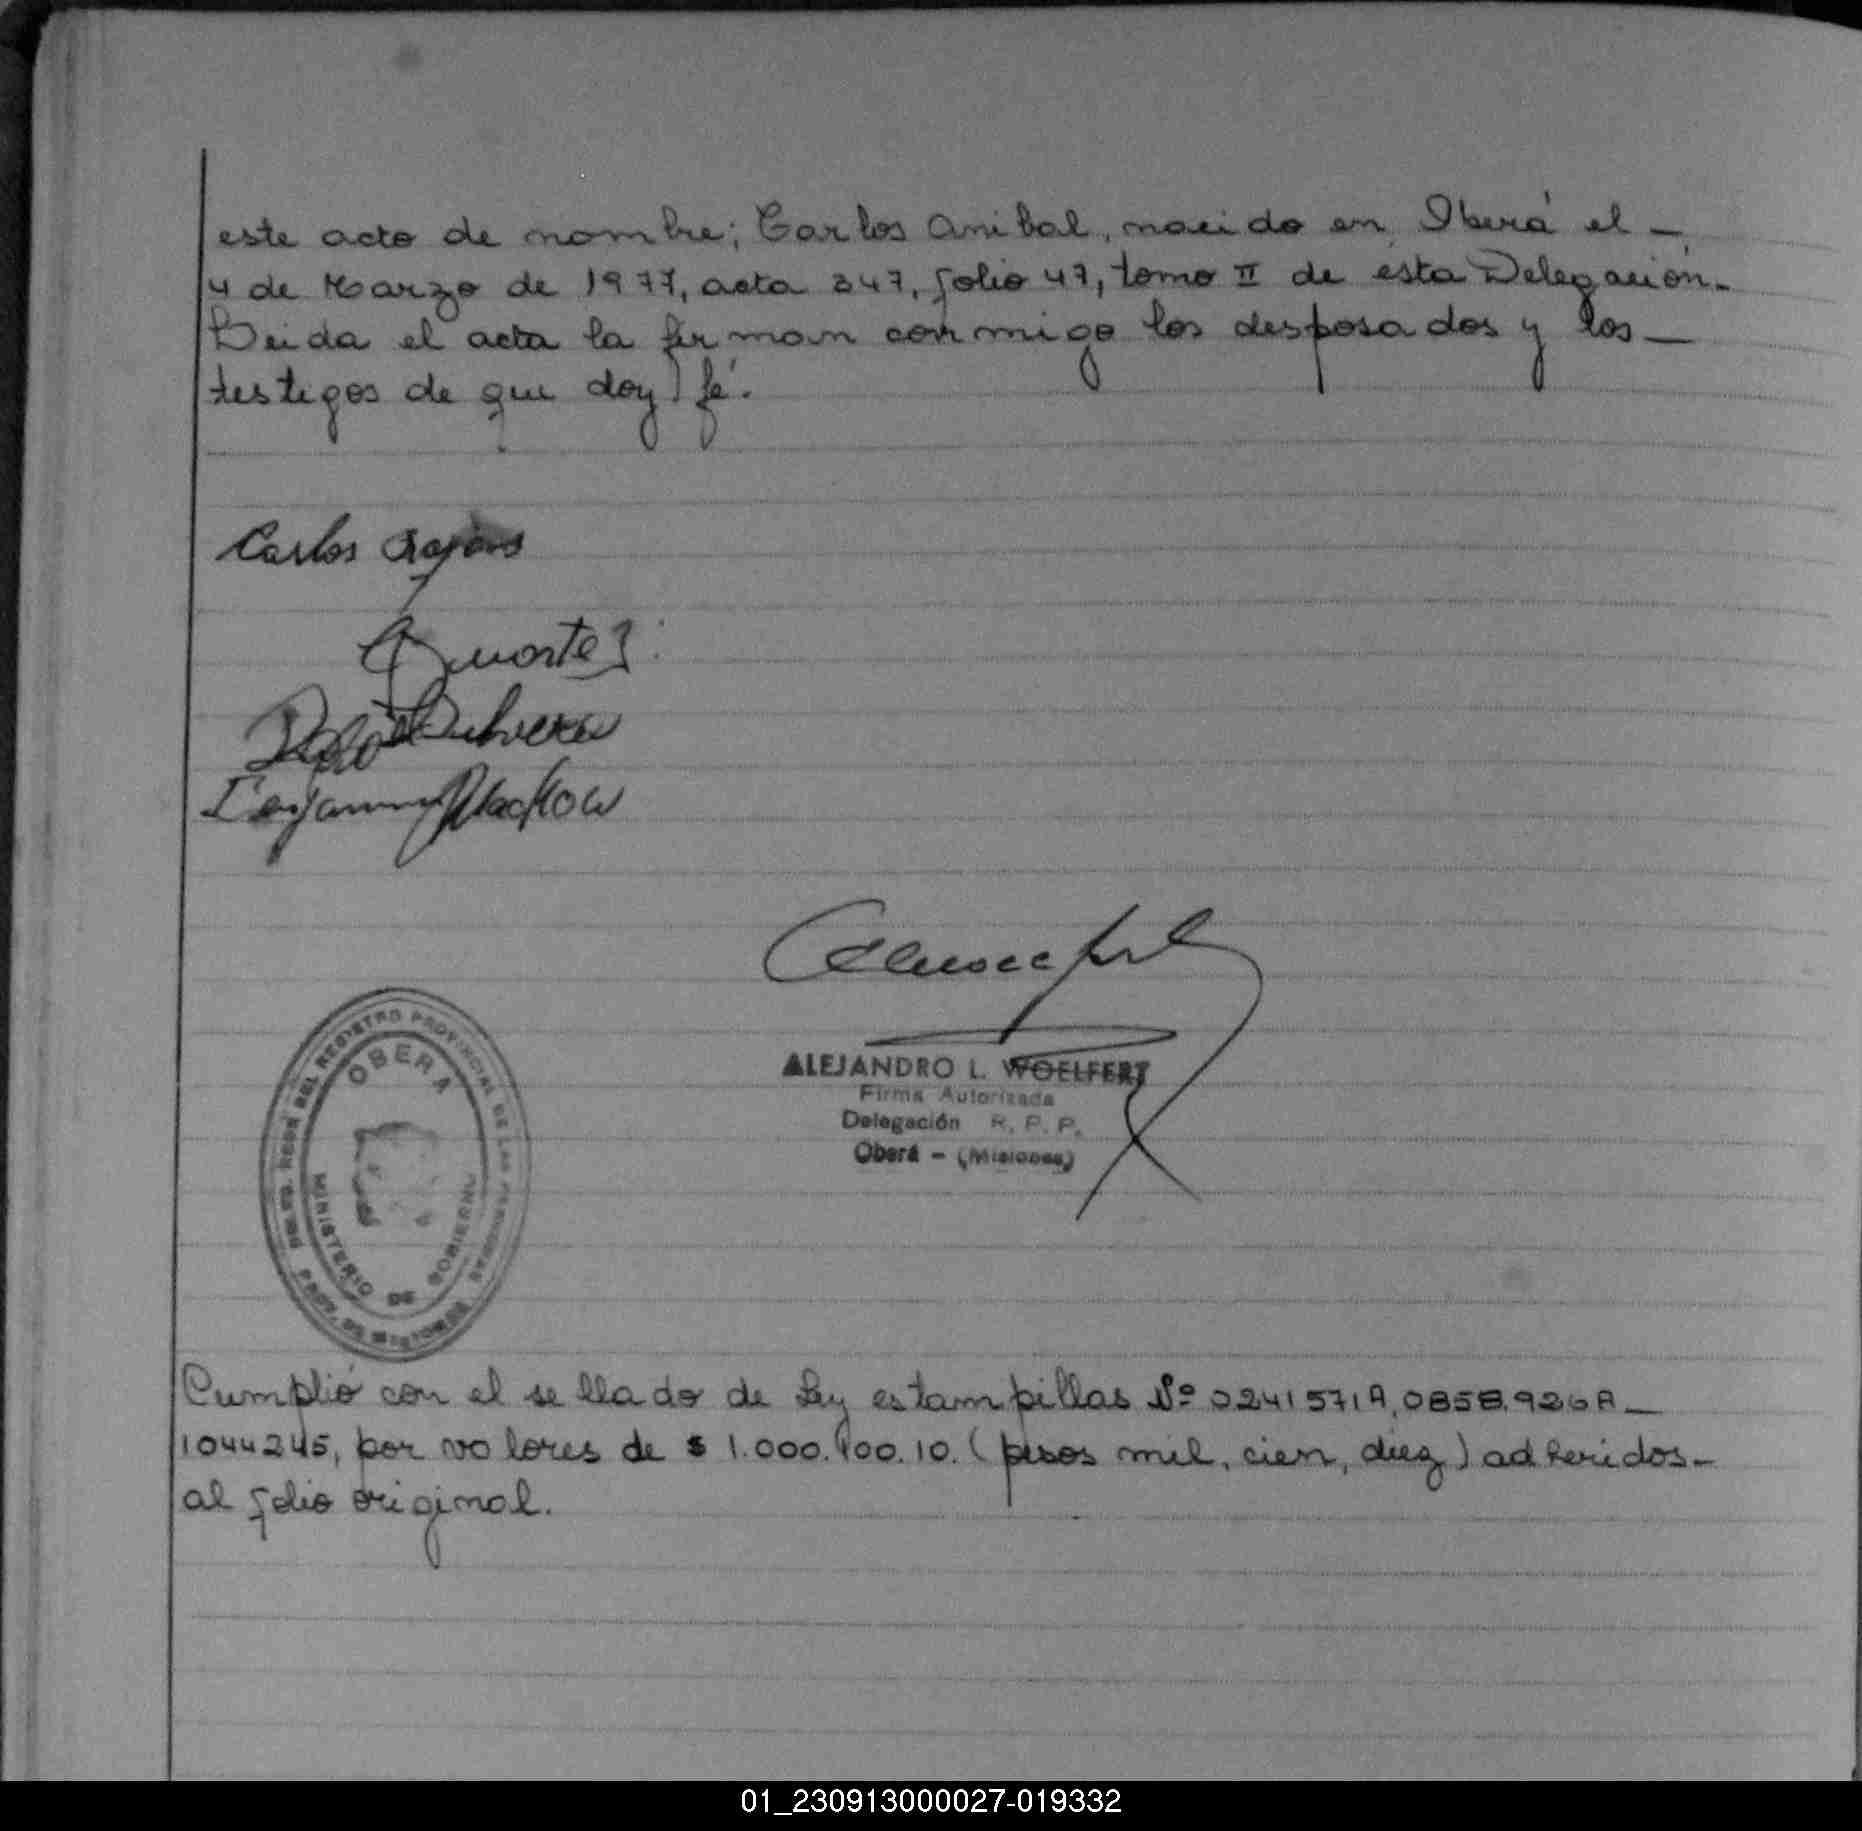 este acto de nombre; Carlos Anibal, nacido en Oberá el —
4 de Marzo de 1977, acta 347, folio 47, tomo II de esta Delegación.
Leida el acta la firman conmigo los desposados y los —
testigos de que doy fé.
Carlos
OBERA
MINISTERIO DE GOBIERNO
DEL REGISTRO PROVINCIAL DE LAS PERSONAS
PROV. DE MISIONES
ALEJANDRO L. WOELFERT
Firma Autorizada
Delegación R. P. P.
Oberá - (Misiones)
Cumplió con el sellado de Ley estampillas Nº 0241571A, 0858.926A —
1044245, por valores de $ 1.000.100.10. (pesos mil, cien, diez) adheridos-
al folio original.
01_230913000027-019332